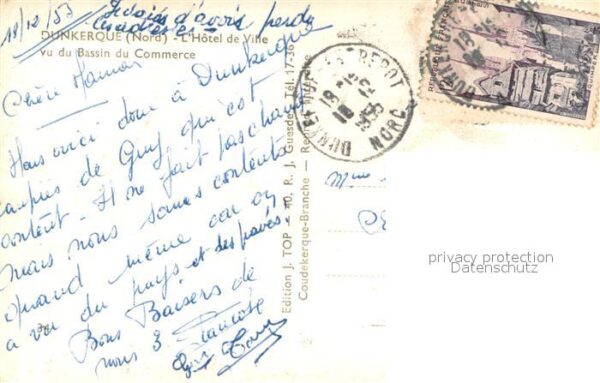 18/12/53
Je vais d'avoir perdu
DUNKERQUE (Nord) - L'Hôtel de Ville
vu du Bassin du Commerce
Chère Maman
Nous voici donc à Dunkerque
auprès de Guy qui est
content - Il ne fait pas chaud
mais nous sommes contents
quand même car on
a vu du pays et des pavés.
Bons Baisers de
nous 3.
Edition J. TOP - 40, R. J. Guesde - Tél. 17-36
Coudekerque-Branche -
DUNKERQUE DEPOT
18 H
18 12
1953
NORD
REPUBLIQUE FRANÇAISE
Mme
privacy protection
Datenschutz